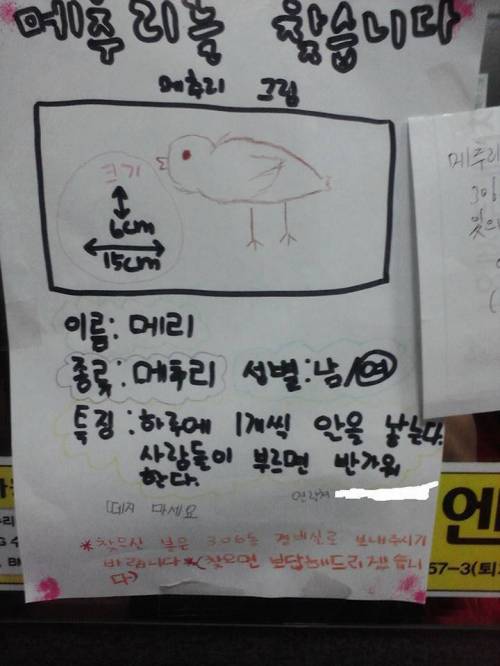 메추리를 찾습니다
메추리 그림
크기
6cm
15cm
이름: 메리
종류: 메추리 성별: 남/여
특징: 하루에 1개씩 알을 낳는다.
사람들이 부르면 반가워
한다.
연락처
떼지 마세요
*찾으신 분은 306동 경비실로 보내주시기
바랍니다*(찾으면 보답해드리겠습니
다)
메추리
3일
엔
57-3(퇴